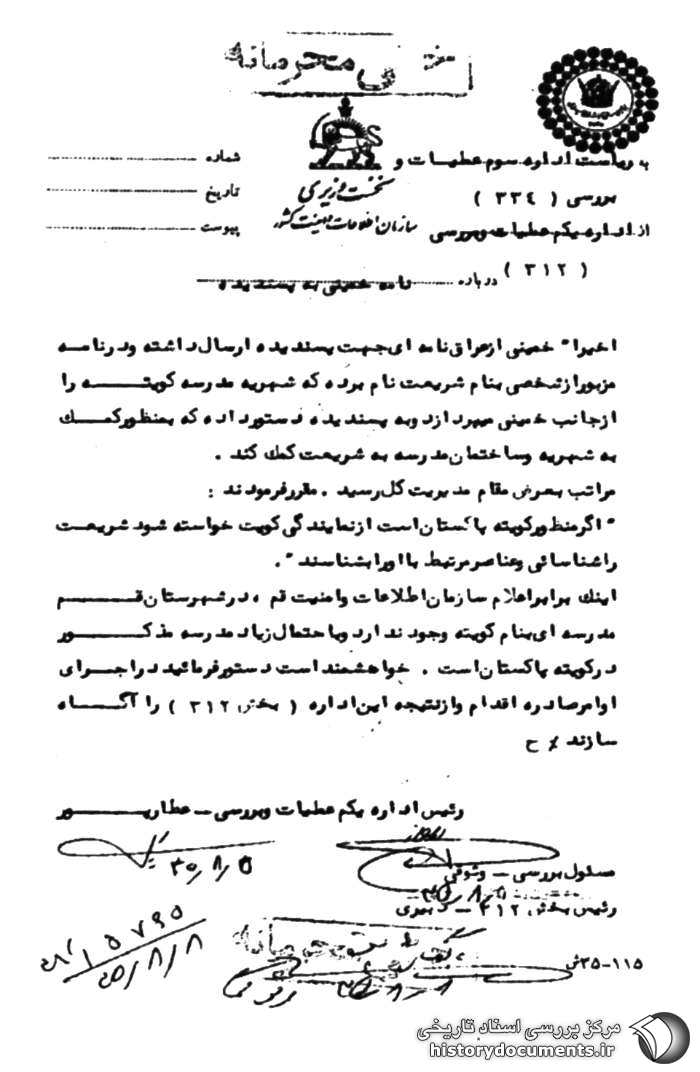 خیلی محرمانه
به ریاست اداره سوم عملیات و
بررسی ( ۳۳٤ )
از اداره یکم عملیات وبررسی
( ۳۱۲ )
نخست وزیری
سازمان اطلاعات و امنیت کشور
شماره
تاریخ
پیوست
درباره نامه خمینی به پسندیده
اخیرا" خمینی ازعراق نامه ای جهت پسندیده ارسال داشته ودرنامه
مزبورازشخصی بنام شریعت نام برده که شهریه مدرسه کویته را
ازجانب خمینی میپردازد وبه پسندیده دستورداده که بمنظورکمک
به شهریه وساختمان مدرسه به شریعت کمک کند .
مراتب بعرض مقام مدیریت کل رسید . مقررفرمودند :
" اگرمنظورکویته پاکستان است ازنمایندگی کویت خواسته شود شریعت
راشناسائی وعناصرمرتبط بااورابشناسند " .
اینك برابراعلام سازمان اطلاعات وامنیت قم ، درشهرستان قم
مدرسه ای بنام کویته وجود ندارد وبااحتمال زیاد مدرسه مذکور
درکویته پاکستان است . خواهشمند است دستورفرمائید دراجرای
اوامرصادره اقدام وازنتیجه این اداره ( بخش ۳۱۲ ) را آگاه
سازند ٪ ح
رئیس اداره یکم عملیات وبررسی - عطارپور
۳۵/۸/۵
مسئول بررسی - وثوقی
رئیس بخش ۳۱۲ - دبیری
۳۵-۱۱۵ش
۱۵۷۹۵
۳۵/۸/۸
مرکز بررسی اسناد تاریخی
historydocuments.ir